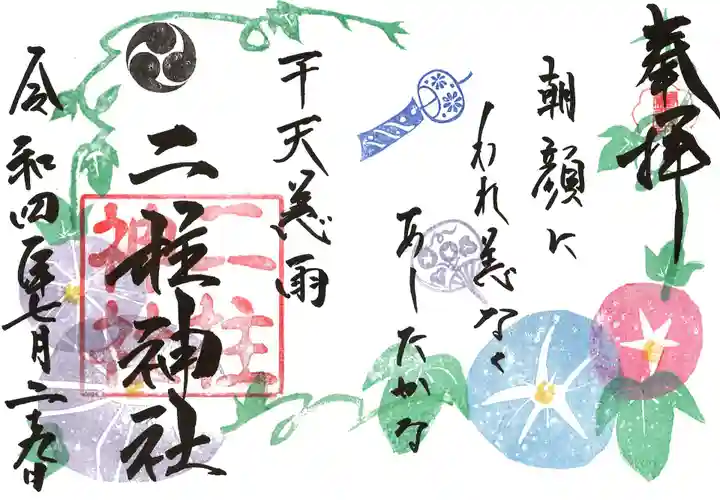 奉拝
朝顔に
われ恙なく
あしたかな
干天慈雨
二柱神社
二柱
神社
令和四年七月二十九日